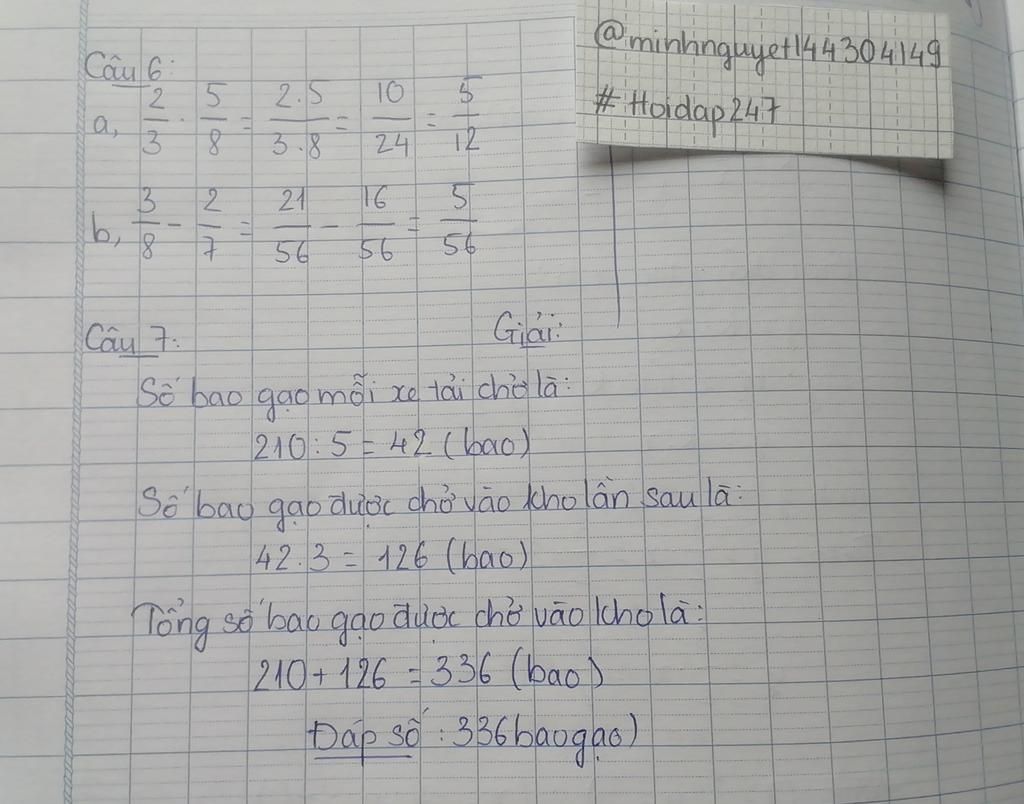 @minhnguyet144304149
# Hoidap247
Câu 6:
a, 2/3 . 5/8 = 2.5/3.8 = 10/24 = 5/12
b, 3/8 - 2/7 = 21/56 - 16/56 = 5/56
Câu 7: Giải:
Số bao gạo mỗi xe tải chở là:
210 : 5 = 42 (bao)
Số bao gạo được chở vào kho lần sau là:
42 . 3 = 126 (bao)
Tổng số bao gạo được chở vào kho là:
210 + 126 = 336 (bao)
Đáp số : 336 bao gạo)